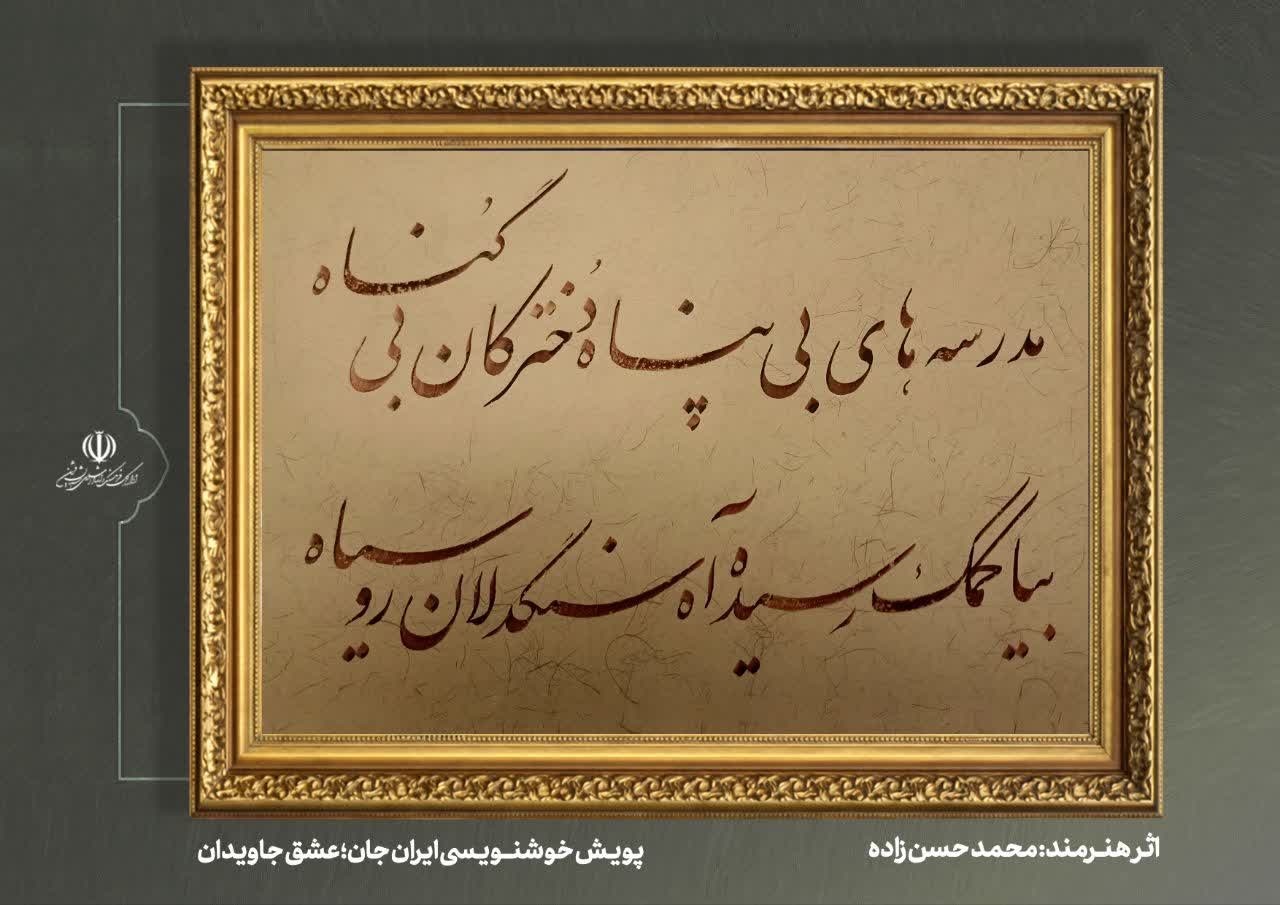 مدرسه های بی پناه دُخترکان بی گُناه
بیا کمک رسیده آه سنگدلان رو سیاه
اثر هنرمند: محمد حسن زاده
پویش خوشنویسی ایران جان؛ عشق جاویدان